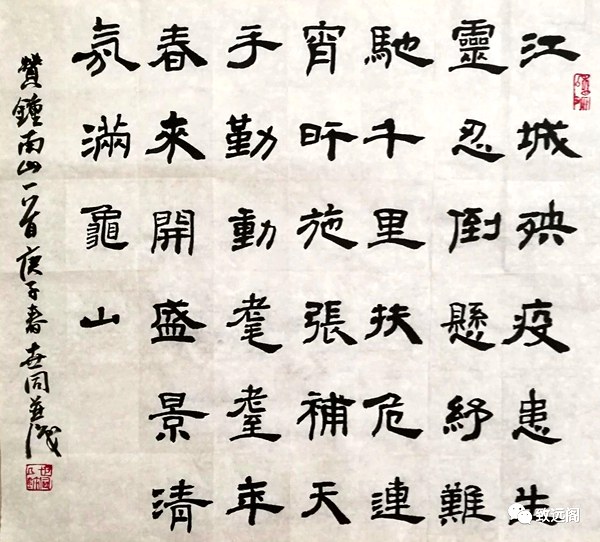 江城殃疫患生
靈忍倒懸紓難
馳千里扶危連
宵昕施張補天
手勤動耄耋年
春來開盛景清
氛滿龜山
贊鍾南山一首庚子春世同並識
致远阁